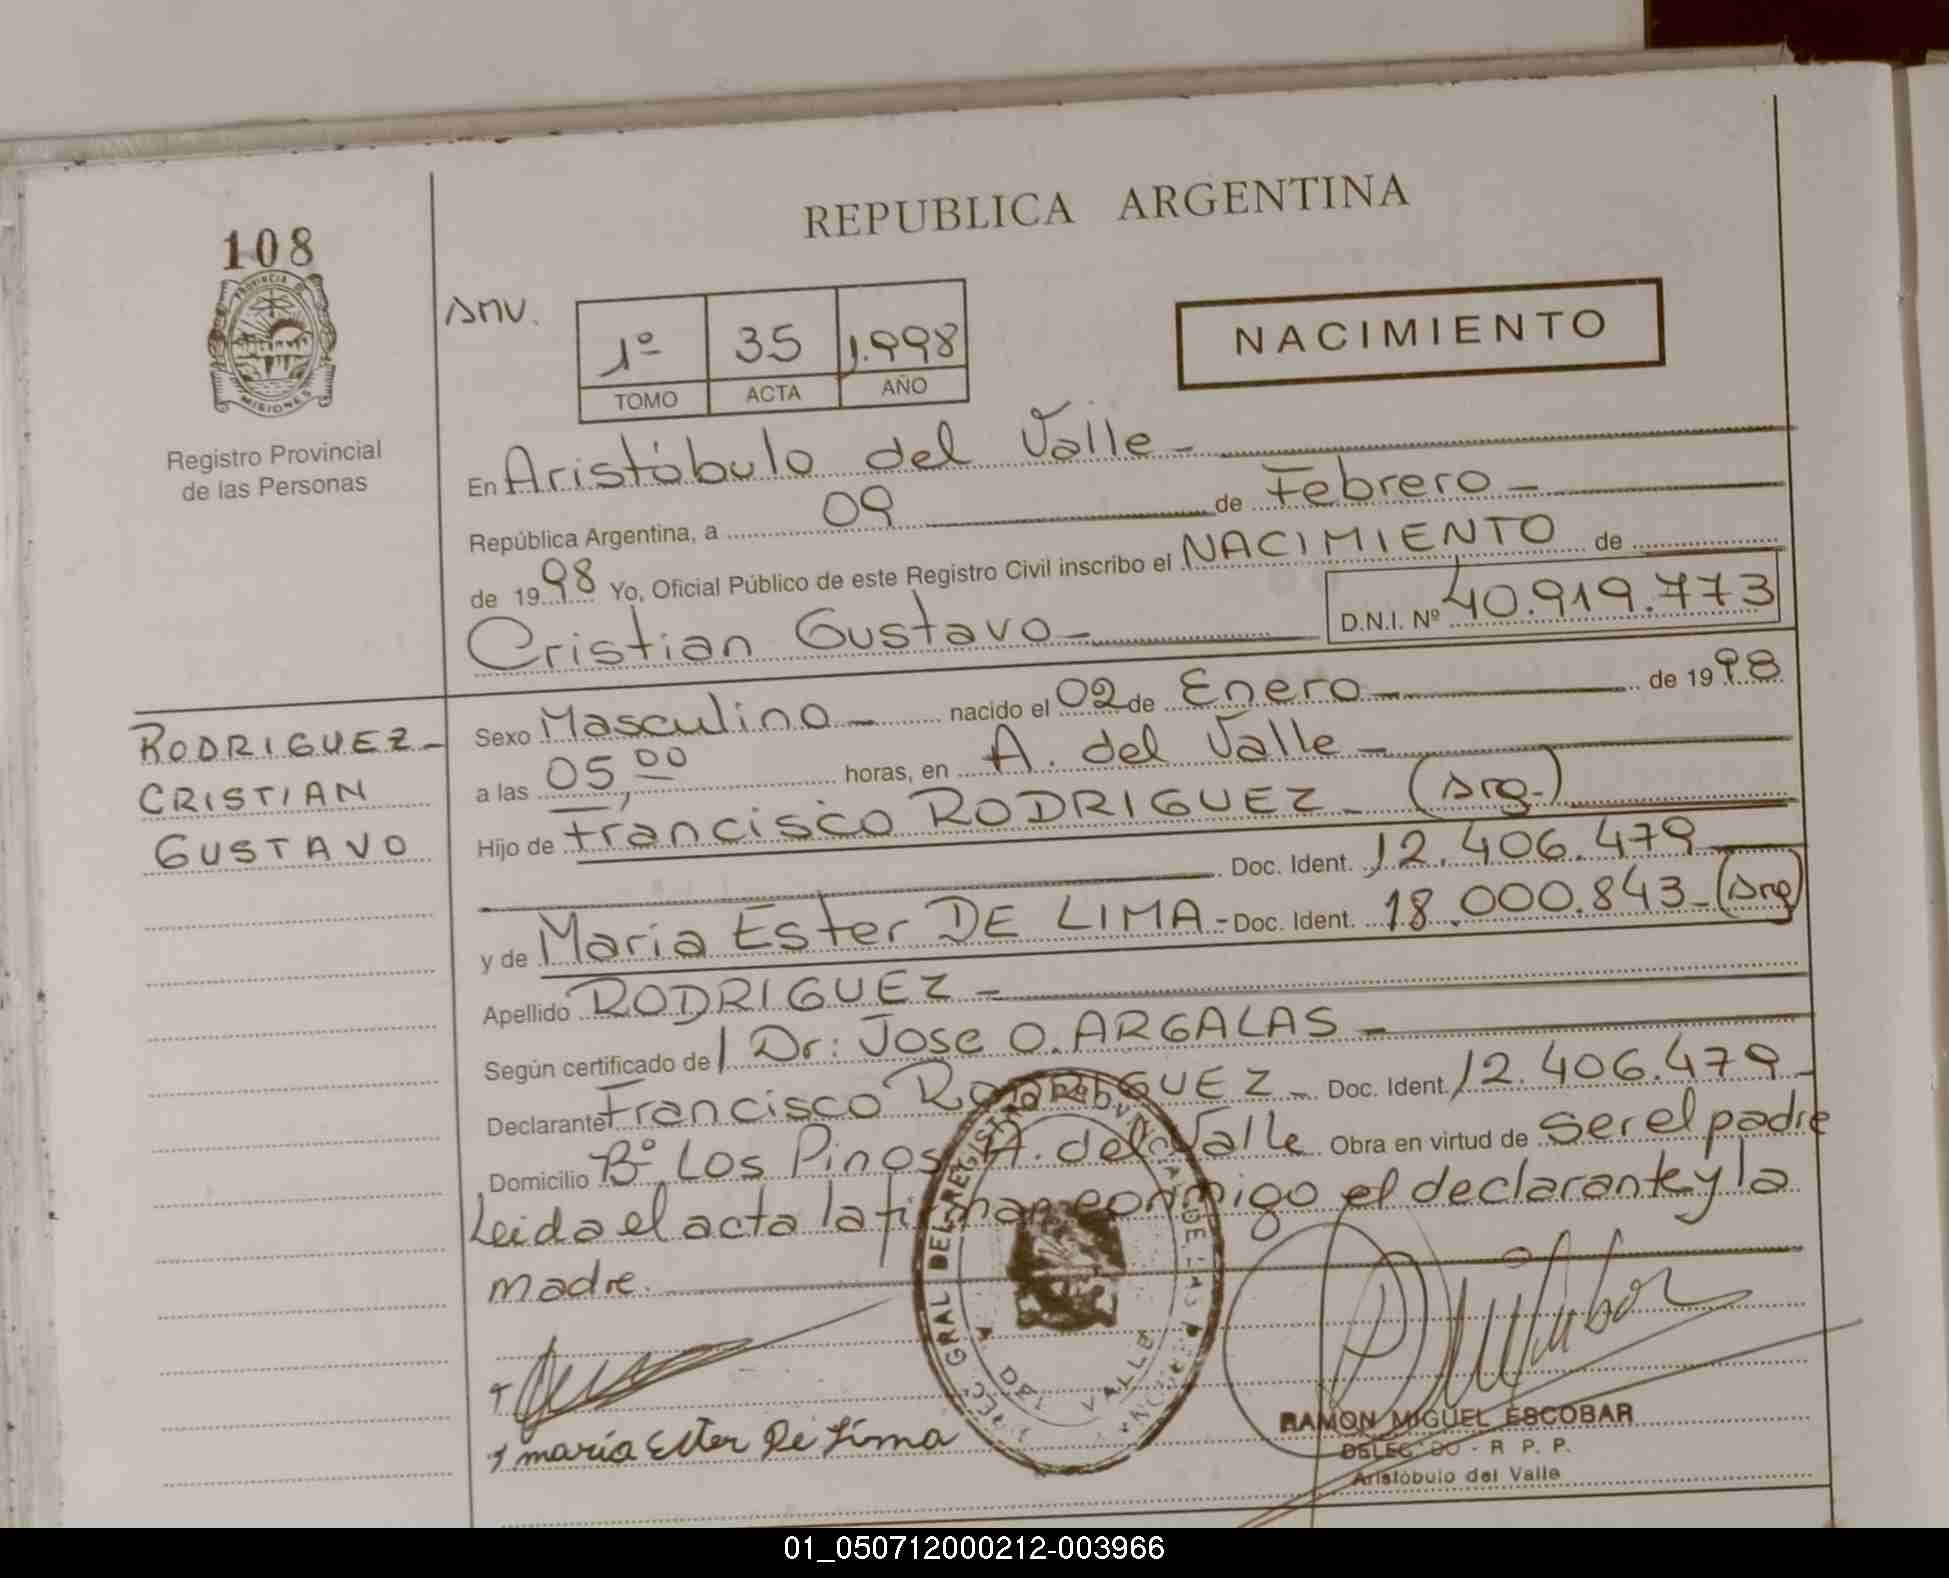 108
PROVINCIA
MISIONES
Registro Provincial
de las Personas
REPUBLICA ARGENTINA
1º 35 1.998
TOMO ACTA AÑO
NACIMIENTO
En Aristóbulo del Valle -
República Argentina, a 09 de Febrero -
de 1998 Yo, Oficial Público de este Registro Civil inscribo el NACIMIENTO de
Cristian Gustavo - D.N.I. Nº 40.919.773
Sexo Masculino - nacido el 02 de Enero - de 1998
a las 05,00 horas, en A. del Valle -
Hijo de Francisco RODRIGUEZ - (Arg.)
Doc. Ident. 12.406.479
y de Maria Ester DE LIMA - Doc. Ident. 18.000.843 - (Arg)
Apellido RODRIGUEZ -
Según certificado de Dr: Jose O. ARGALAS -
Declarante Francisco RODRIGUEZ - Doc. Ident. 12.406.479 -
Domicilio Bº Los Pinos A. del Valle Obra en virtud de ser el padre
Leida el acta la firman conmigo el declarante y la
madre.
RODRIGUEZ -
CRISTIAN
GUSTAVO
maría Ester De Lima
GRAL DEL REGISTRO
DE LAS
DEL VALLE
RAMON MIGUEL ESCOBAR
R P. P.
Aristóbulo del Valle
01_050712000212-003966